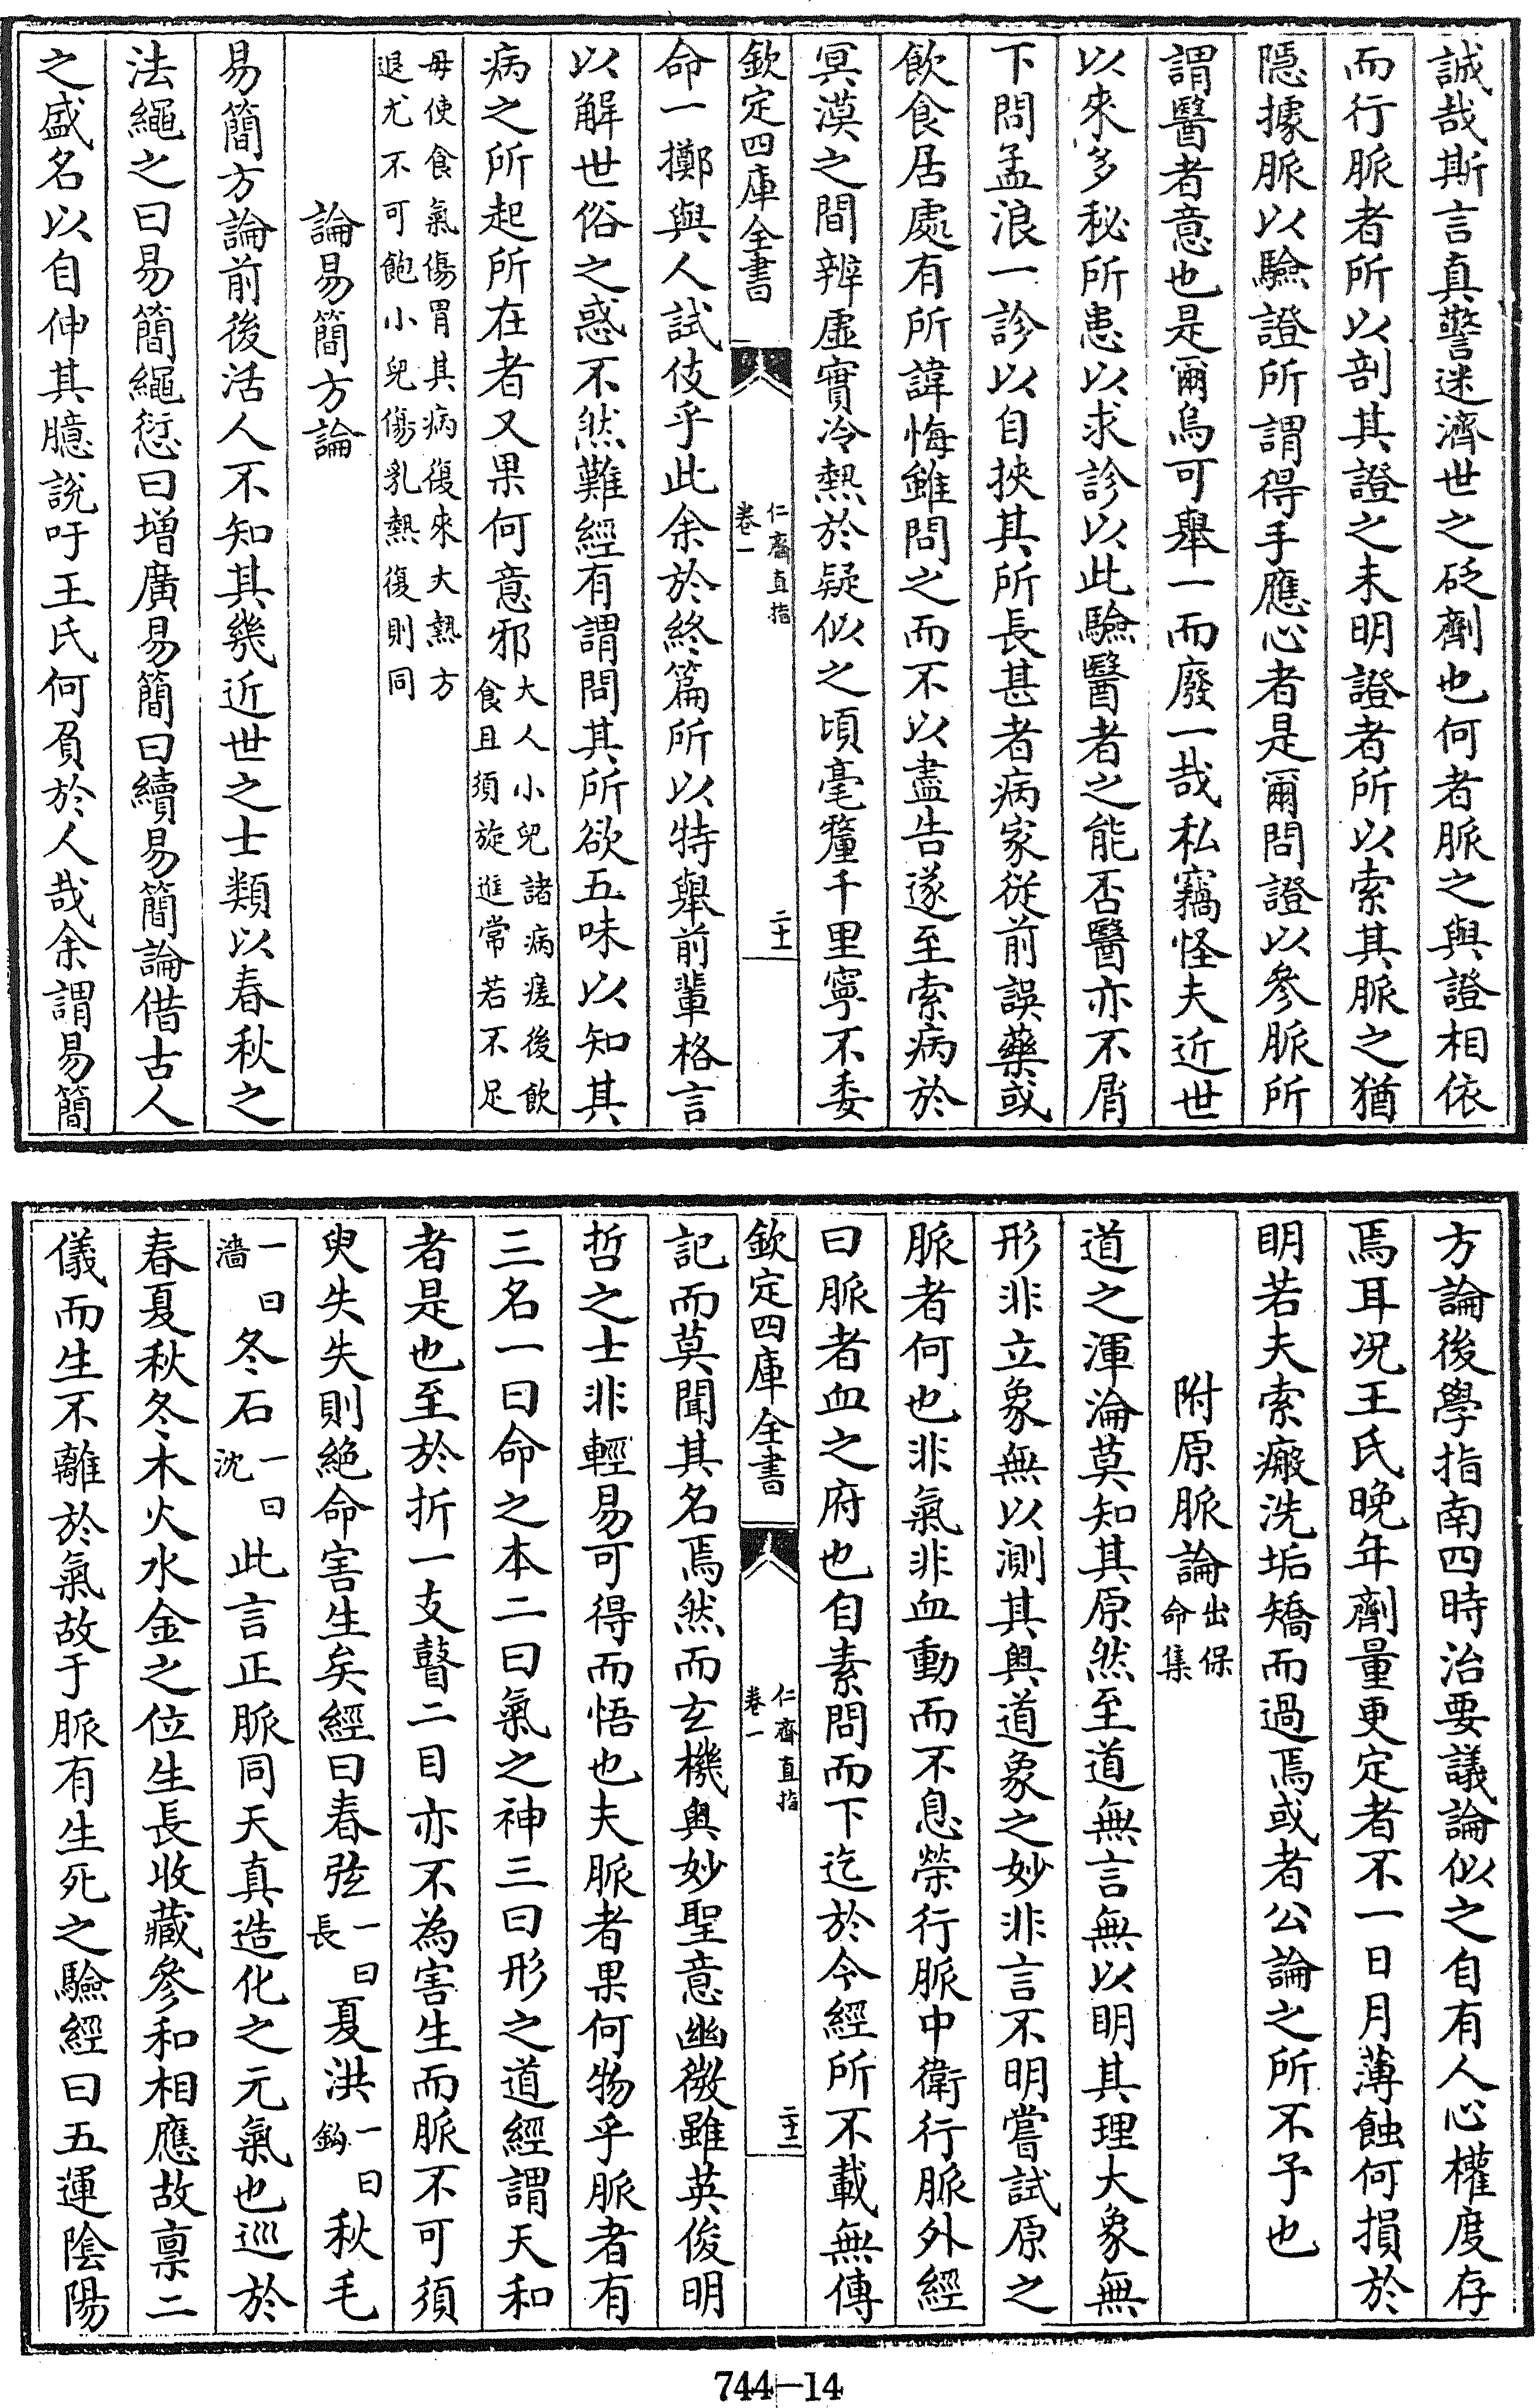 誠哉斯言真警迷濟世之砭劑也何者脈之與證相依
而行脈者所以剖其證之未明證者所以索其脈之猶
隱據脈以驗證所謂得手應心者是爾問證以參脈所
謂醫者意也是爾烏可舉一而廢一哉私竊怪夫近世
以來多秘所患以求診以此驗醫者之能否醫亦不屑
下問孟浪一診以自挾其所長甚者病家從前誤藥或
飲食居處有所諱悔雖問之而不以盡告遂至索病於
冥漠之間辨虛實冷熱於疑似之頃毫釐千里寧不委
欽定四庫全書
仁齋直指
卷一
二十一
命一擲與人試伎乎此余於終篇所以特舉前輩格言
以解世俗之惑不然難經有謂問其所欲五味以知其
病之所起所在者又果何意邪大人小兒諸病瘥後飲食且須旋進常若不足
毋使食氣傷胃其病復來大熱方退尤不可飽小兒傷乳熱復則同
論易簡方論
易簡方論前後活人不知其幾近世之士類以春秋之
法繩之曰易簡繩愆曰增廣易簡曰續易簡論借古人
之盛名以自伸其臆說吁王氏何負於人哉余謂易簡
方論後學指南四時治要議論似之自有人心權度存
焉耳况王氏晚年劑量更定者不一日月薄蝕何損於
明若夫索瘢洗垢矯而過焉或者公論之所不予也
附原脈論出保命集
道之渾淪莫知其原然至道無言無以明其理大象無
形非立象無以測其奥道象之妙非言不明嘗試原之
脈者何也非氣非血動而不息榮行脈中衛行脈外經
曰脈者血之府也自素問而下迄於今經所不載無傳
欽定四庫全書
仁齋直指
卷一
二十二
記而莫聞其名焉然而玄機奥妙聖意幽微雖英俊明
哲之士非輕易可得而悟也夫脈者果何物乎脈者有
三名一曰命之本二曰氣之神三曰形之道經謂天和
者是也至於折一支瞽二目亦不為害生而脈不可須
臾失失則絶命害生矣經曰春弦一曰長夏洪一曰鈎秋毛
一曰濇冬石一曰沈此言正脈同天真造化之元氣也巡於
春夏秋冬木火水金之位生長收藏參和相應故禀二
儀而生不離於氣故于脈有生死之驗經曰五運陰陽
744—14